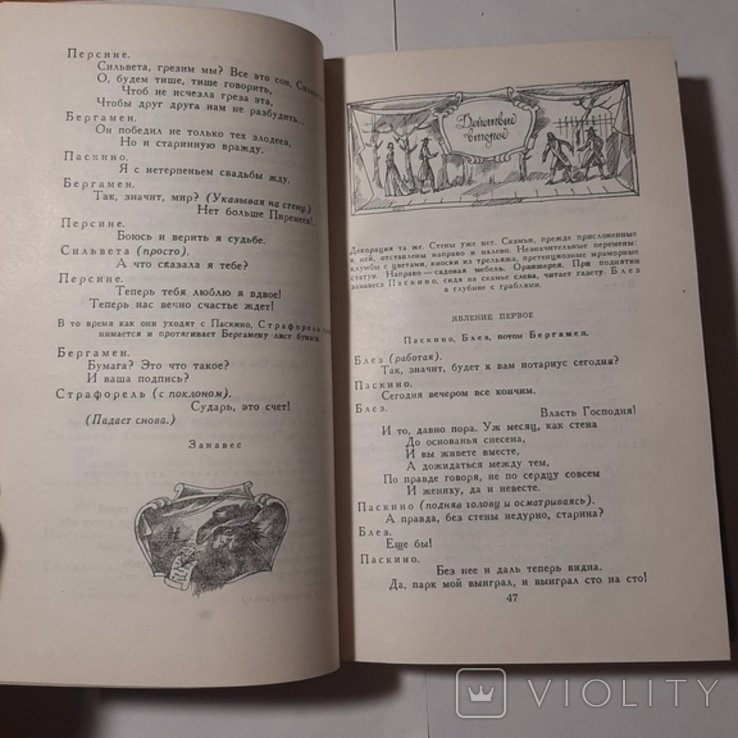 Персине.
Сильвета, грезим мы? Все это сон, Сильвета
О, будем тише, тише говорить,
Чтоб не исчезла греза эта,
Чтобы друг друга нам не разбудить...
Бергамен.
Он победил не только тех злодеев,
Но и старинную вражду.
Паскино.
Я с нетерпеньем свадьбы жду.
Бергамен.
Так, значит, мир? (Указывая на стену.)
Нет больше Пиренеев!..
Персине.
Боюсь и верить я судьбе.
Сильвета (просто).
А что сказала я тебе?
Персине.
Теперь тебя люблю я вдвое!
Теперь нас вечно счастье ждет!
В то время как они уходят с Паскино, Страфорель
нимается и протягивает Бергамену лист бумаги.
Бергамен.
Бумага? Это что такое?
И ваша подпись?
Страфорель (с поклоном).
Сударь, это счет!
(Падает снова.)
Занавес
Действие
второе
Декорация та же. Стены уже нет. Скамьи, прежде прислоненные
к ней, отставлены направо и налево. Незначительные перемены:
клумбы с цветами, киоски из трельяжа, претенциозные мраморные
статуи. Направо — садовая мебель. Оранжерея. При поднятии
занавеса Паскино, сидя на скамье слева, читает газету. Блез
в глубине с граблями.
ЯВЛЕНИЕ ПЕРВОЕ
Паскино, Блез, потом Бергамен.
Блез (работая).
Так, значит, будет к вам нотариус сегодня?
Паскино.
Сегодня вечером все кончим.
Блез.
Власть Господня!
И то, давно пора. Уж месяц, как стена
До основанья снесена,
И вы живете вместе,
А дожидаться между тем,
По правде говоря, не по сердцу совсем
И жениху, да и невесте.
Паскино (подняв голову и осматриваясь).
А правда, без стены недурно, старина?
Блез.
Еще бы!
Паскино.
Без нее и даль теперь видна.
Да, парк мой выиграл, и выиграл сто на сто!
47
VIOLITY